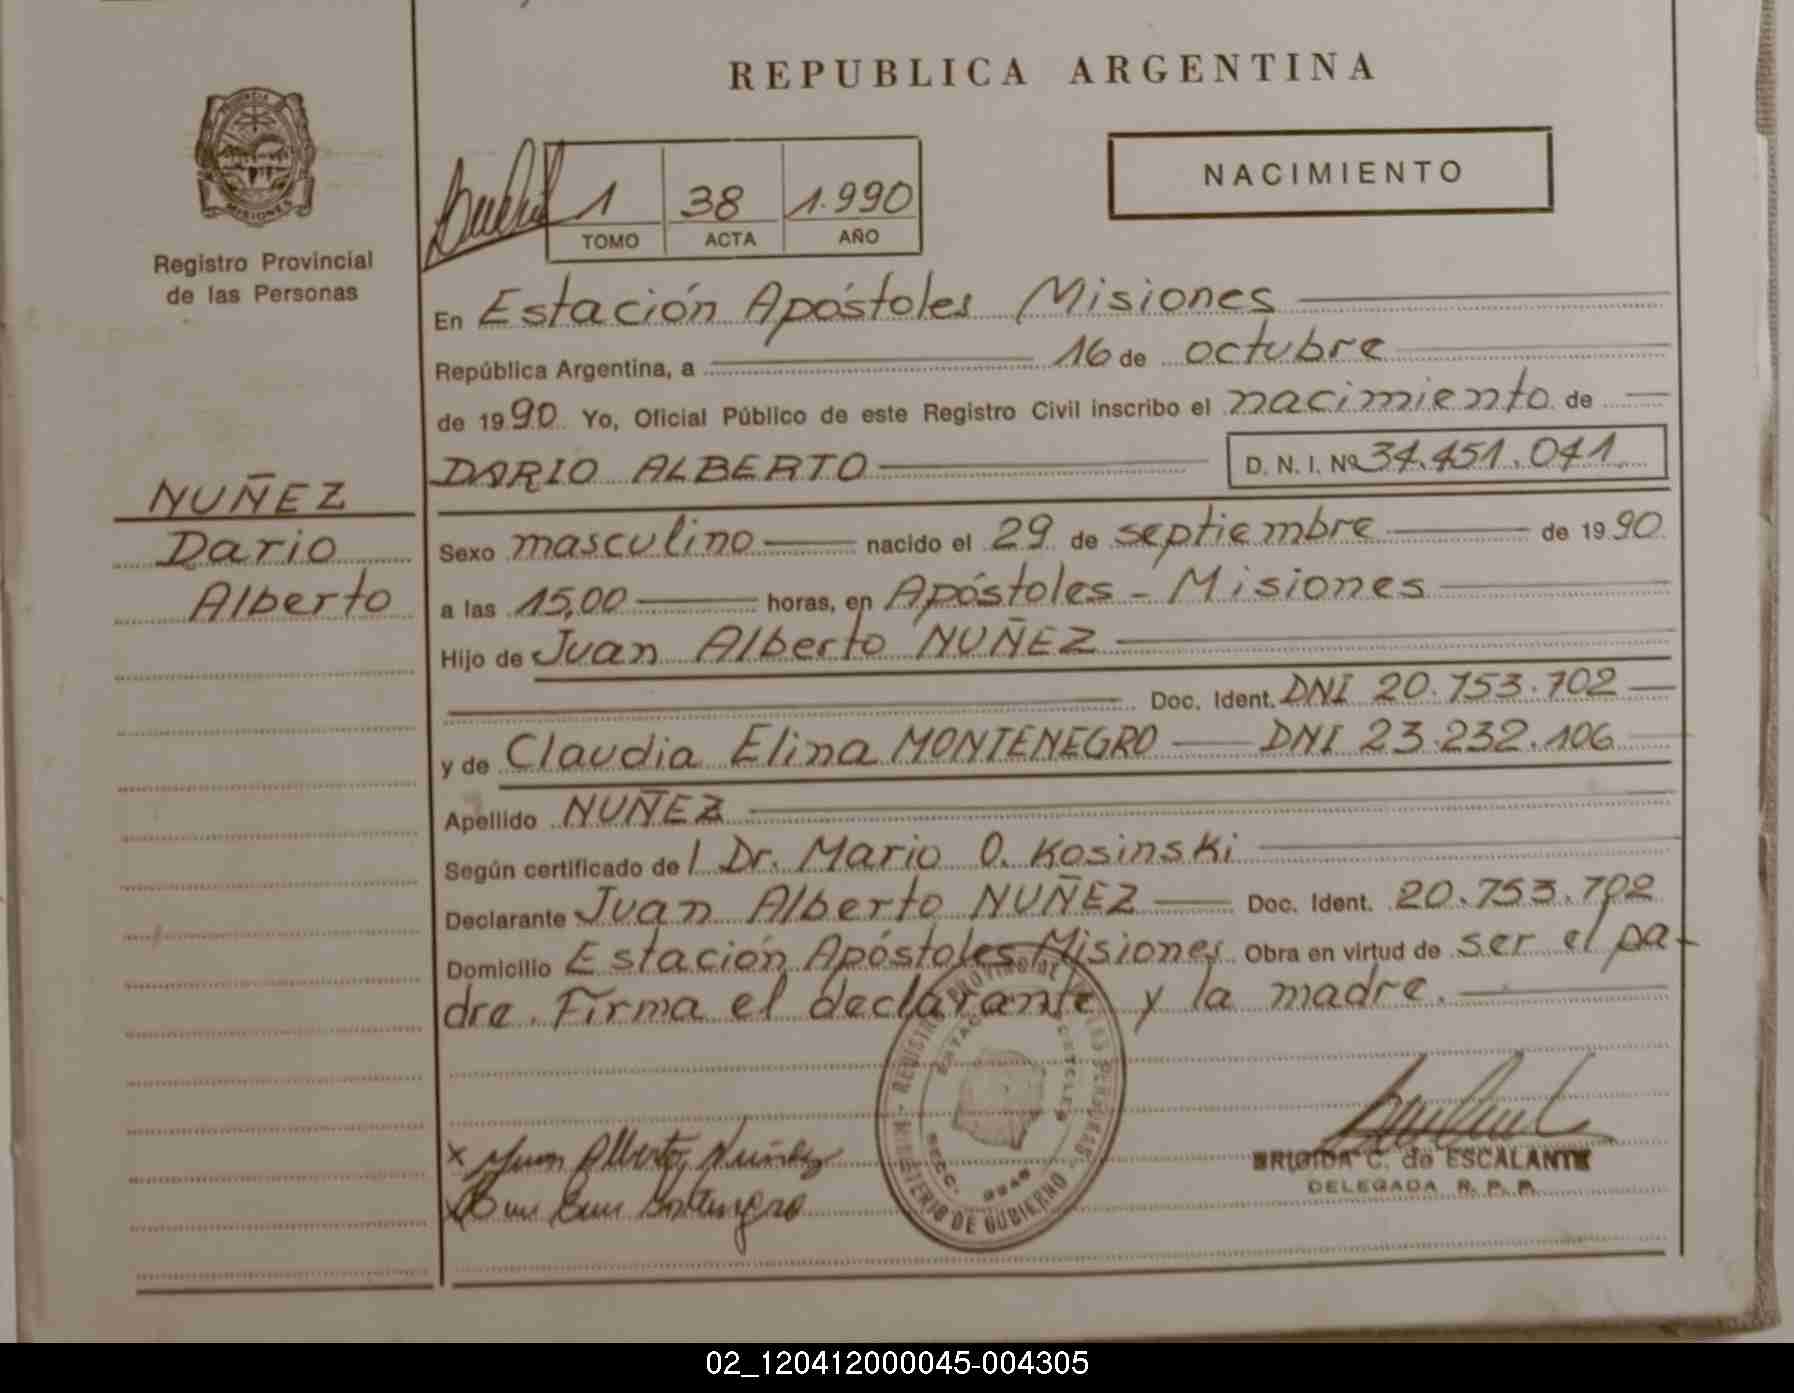 REPUBLICA ARGENTINA
PROVINCIA
MISIONES
Registro Provincial
de las Personas
1 38 1.990
TOMO ACTA AÑO
NACIMIENTO
En Estación Apóstoles Misiones
República Argentina, a 16 de octubre
de 1990 Yo, Oficial Público de este Registro Civil inscribo el nacimiento de
DARIO ALBERTO D. N. I. Nº 34.451.041
NUÑEZ
Dario
Alberto
Sexo masculino nacido el 29 de septiembre de 1990
a las 15,00 horas, en Apóstoles - Misiones
Hijo de Juan Alberto NUÑEZ
Doc. Ident. DNI 20.753.702
y de Claudia Elina MONTENEGRO DNI 23.232.106
Apellido NUÑEZ
Según certificado de l Dr. Mario O. Kosinski
Declarante Juan Alberto NUÑEZ Doc. Ident. 20.753.702
Domicilio Estación Apóstoles Misiones Obra en virtud de ser el pa-
dre. Firma el declarante y la madre.
x Juan Alberto Nuñez
BRIGIDA C. de ESCALANTE
DELEGADA R. P. P.
MINISTERIO DE GOBIERNO
02_120412000045-004305